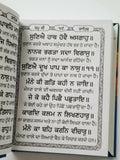 ਸੁਣਿਐ ਹਾਥ ਹੋਵੈ ਅਸਗਾਹੁ ॥
ਨਾਨਕ ਭਗਤਾ ਸਦਾ ਵਿਗਾਸੁ ॥
ਸੁਣਿਐ ਦੂਖ ਪਾਪ ਕਾ ਨਾਸੁ ॥੧੧॥
ਮੰਨੇ ਕੀ ਗਤਿ ਕਹੀ ਨ ਜਾਇ ॥
ਜੇ ਕੋ ਕਹੈ ਪਿਛੈ ਪਛੁਤਾਇ ॥
ਕਾਗਦਿ ਕਲਮ ਨ ਲਿਖਣਹਾਰੁ ॥
ਮੰਨੇ ਕਾ ਬਹਿ ਕਰਨਿ ਵੀਚਾਰੁ ॥